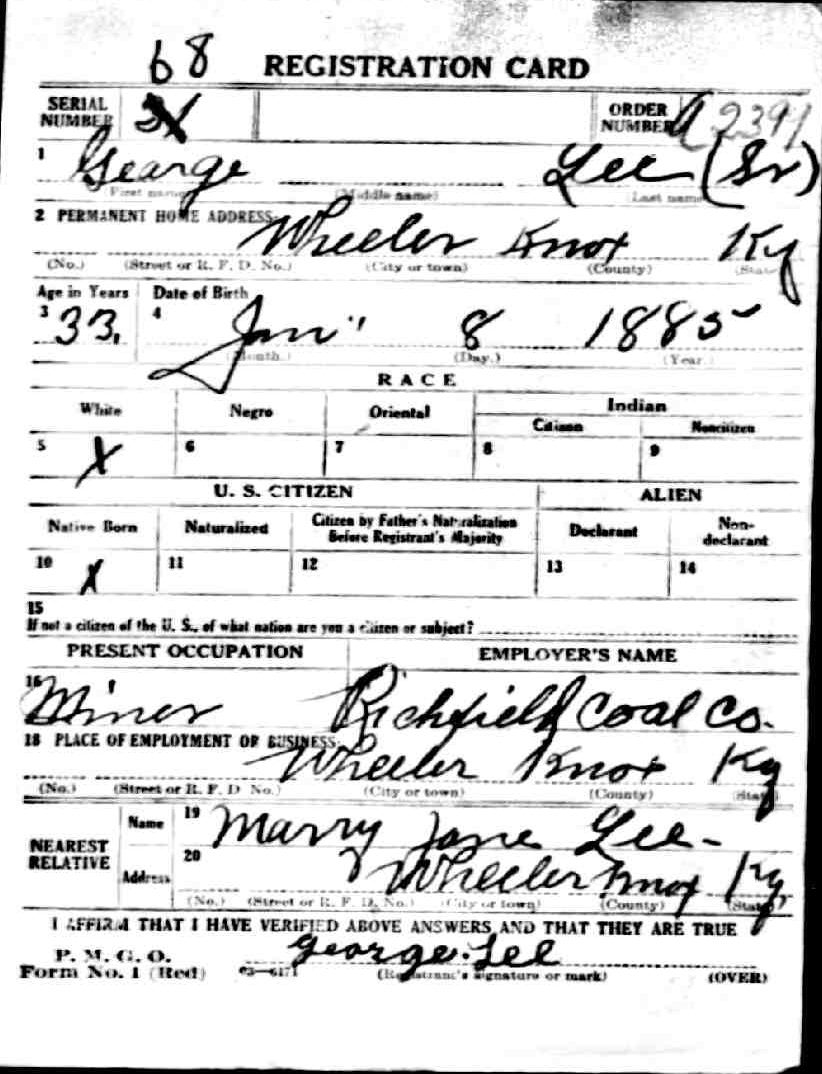 68 REGISTRATION CARD
SERIAL NUMBER ORDER NUMBER A 2391
1 George Lee (Sr)
First name (Middle name) Last name
2 PERMANENT HOME ADDRESS: Wheeler Knox Ky
(No.) (Street or R. F. D. No.) (City or town) (County) (State)
Age in Years Date of Birth
3 33, 4 Jan 8 1885
(Month.) (Day.) (Year.)
RACE
White Negro Oriental Indian
Citizen Noncitizen
5 X 6 7 8 9
U. S. CITIZEN ALIEN
Native Born Naturalized Citizen by Father's Naturalization Before Registrant's Majority Declarant Non-declarant
10 X 11 12 13 14
15
If not a citizen of the U. S., of what nation are you a citizen or subject?
PRESENT OCCUPATION EMPLOYER'S NAME
16 Miner Richfield Coal Co.
18 PLACE OF EMPLOYMENT OR BUSINESS: Wheeler Knox Ky
(No.) (Street or R. F. D No.) (City or town) (County) (State)
NEAREST RELATIVE Name 19 Marry Jane Lee-
Address 20 Wheeler Knox Ky
(No.) (Street or R. F. D. No.) (City or town) (County) (State)
I AFFIRM THAT I HAVE VERIFIED ABOVE ANSWERS AND THAT THEY ARE TRUE
P. M. G. O.
Form No. 1 (Red) 03—6171 George. Lee
(Registrant's signature or mark) (OVER)